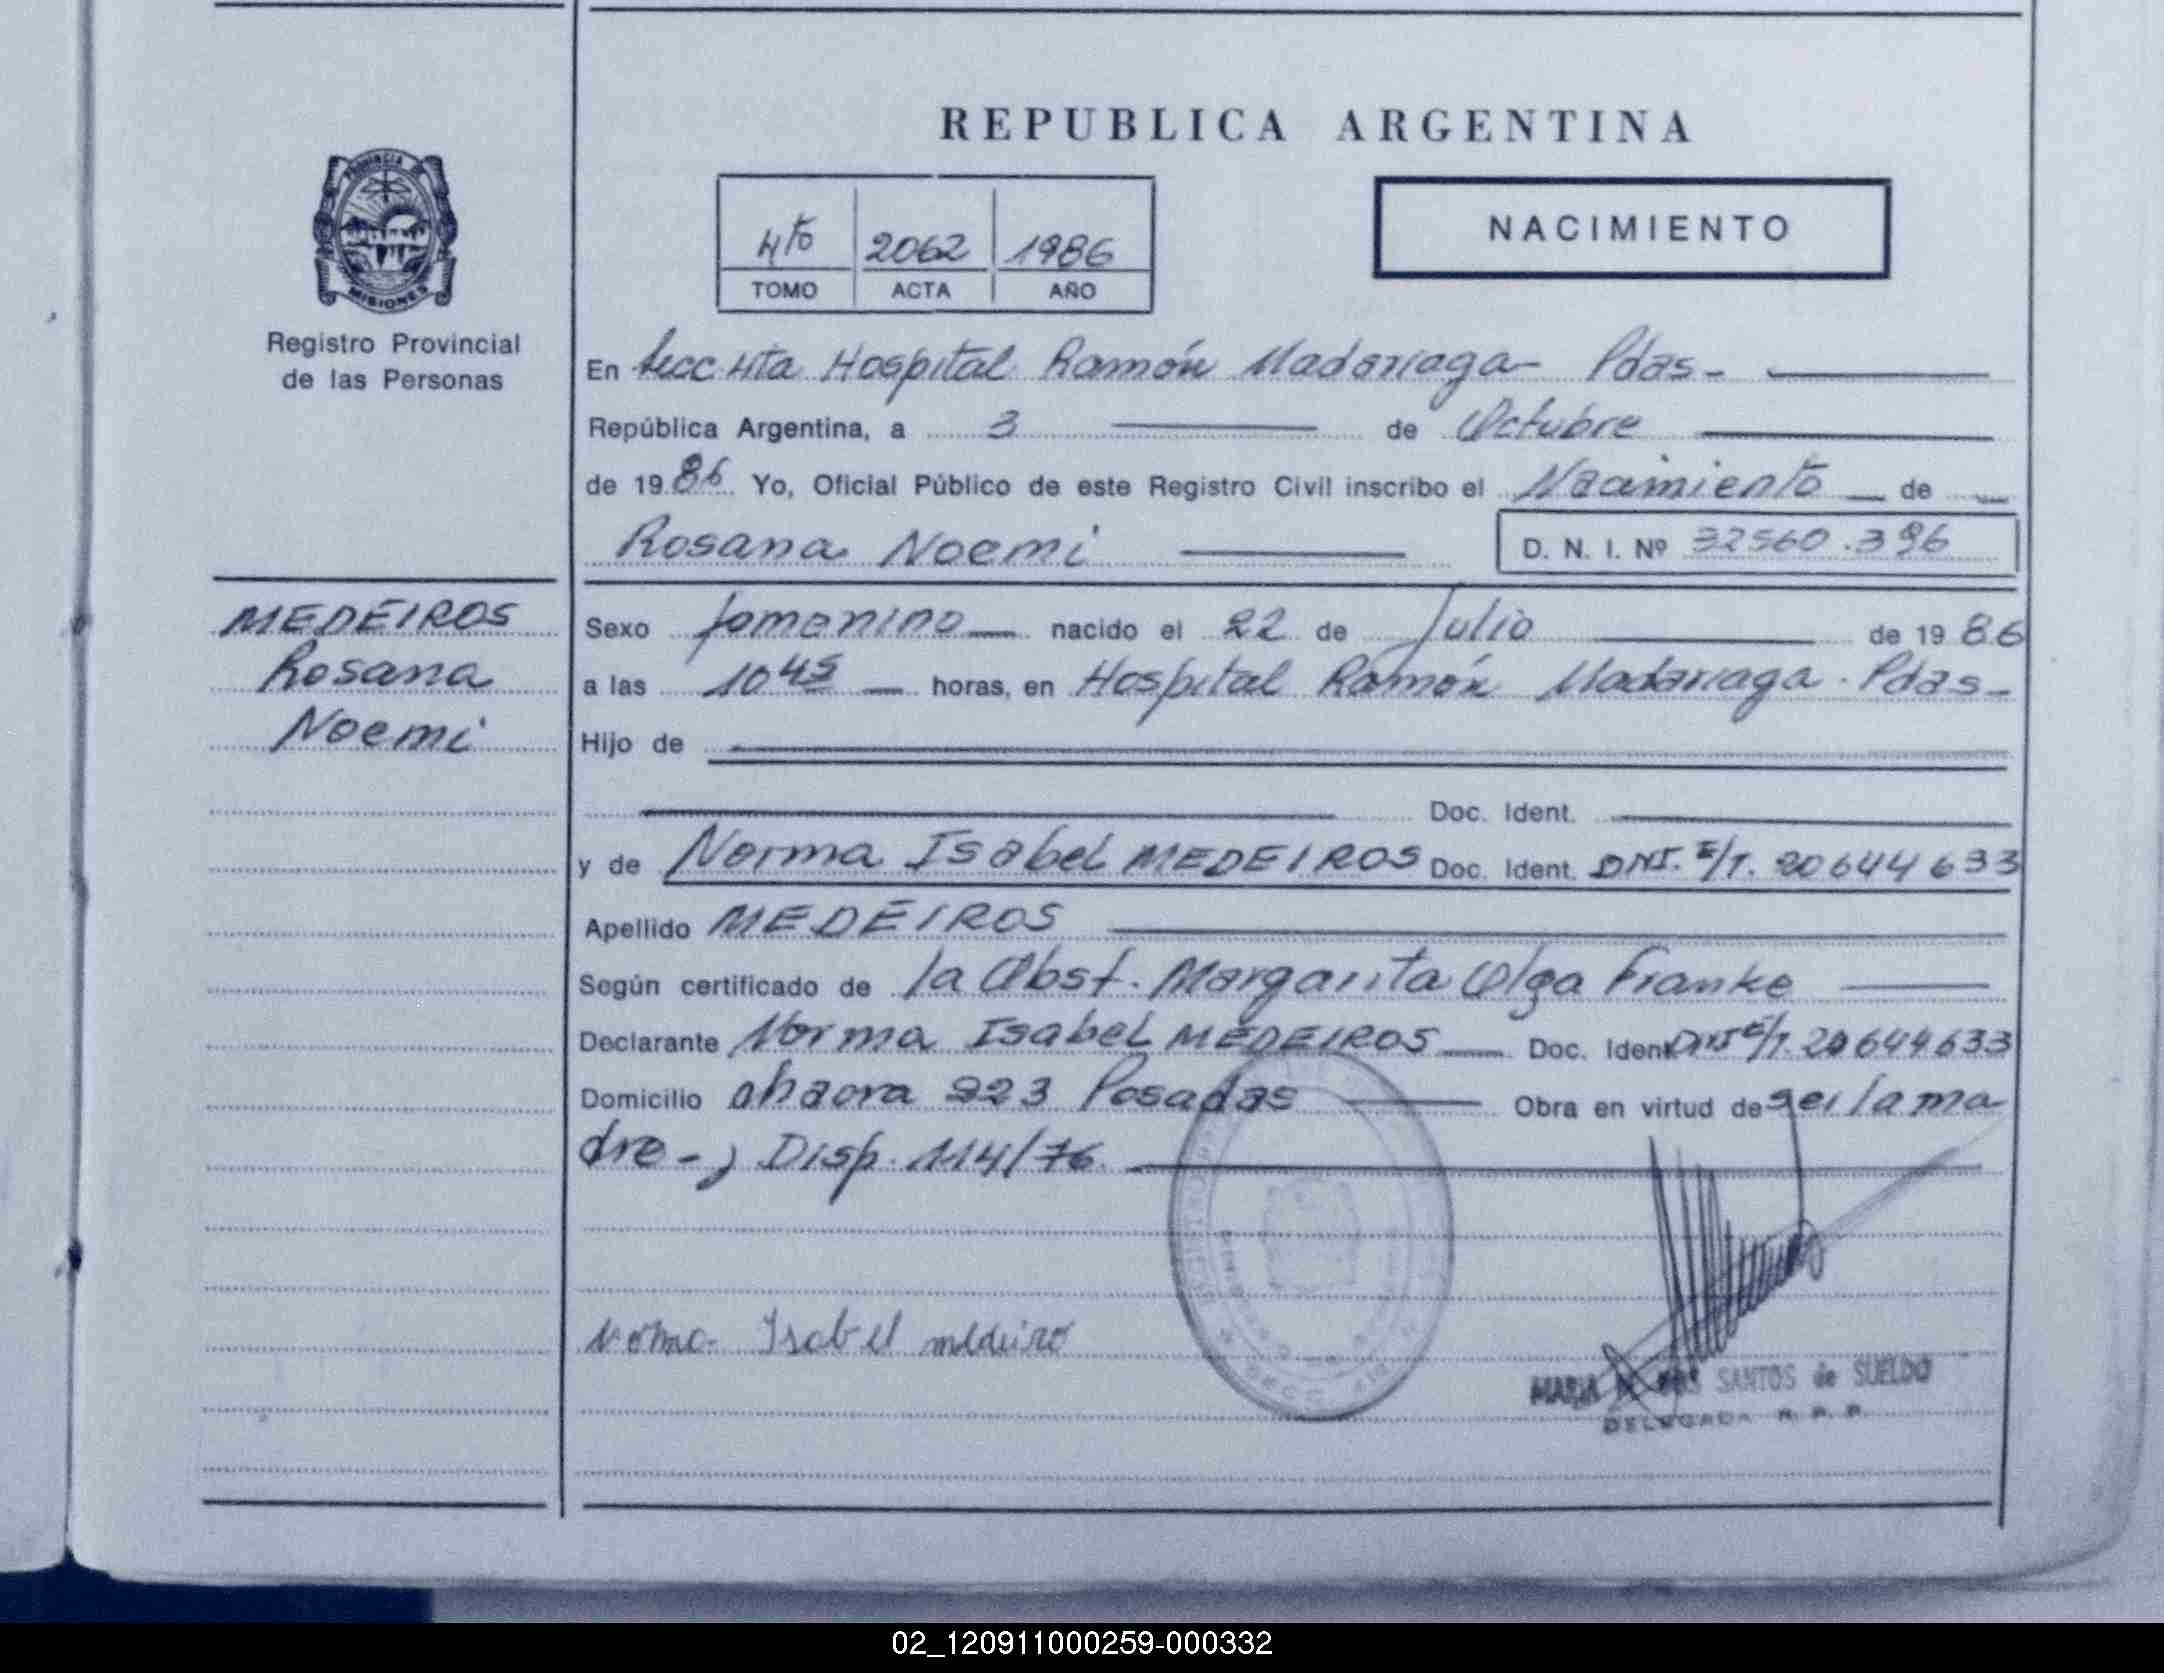 REPUBLICA ARGENTINA
PROVINCIA DE
MISIONES
Registro Provincial
de las Personas
4to 2062 1986
TOMO ACTA AÑO
NACIMIENTO
En Secc 4ta Hospital Ramón Madariaga - Pdas -
República Argentina, a 3 de Octubre
de 1986 Yo, Oficial Público de este Registro Civil inscribo el Nacimiento de
Rosana Noemi
D. N. I. Nº 32560.396
MEDEIROS
Rosana
Noemi
Sexo femenino nacido el 22 de Julio de 1986
a las 10 45 horas, en Hospital Ramón Madariaga - Pdas -
Hijo de
Doc. Ident.
y de Norma Isabel MEDEIROS Doc. Ident. DNI. E/T. 20644633
Apellido MEDEIROS
Según certificado de la Obst. Margarita Olga Franke
Declarante Norma Isabel MEDEIROS Doc. Ident DNI E/T. 20644633
Domicilio 223 Posadas Obra en virtud de ser la ma
dre - ; Disp. 114/76
Norma Isabel medeiro
MARIA SANTOS de SUELDO
DELEGADA R. P. P.
02_120911000259-000332